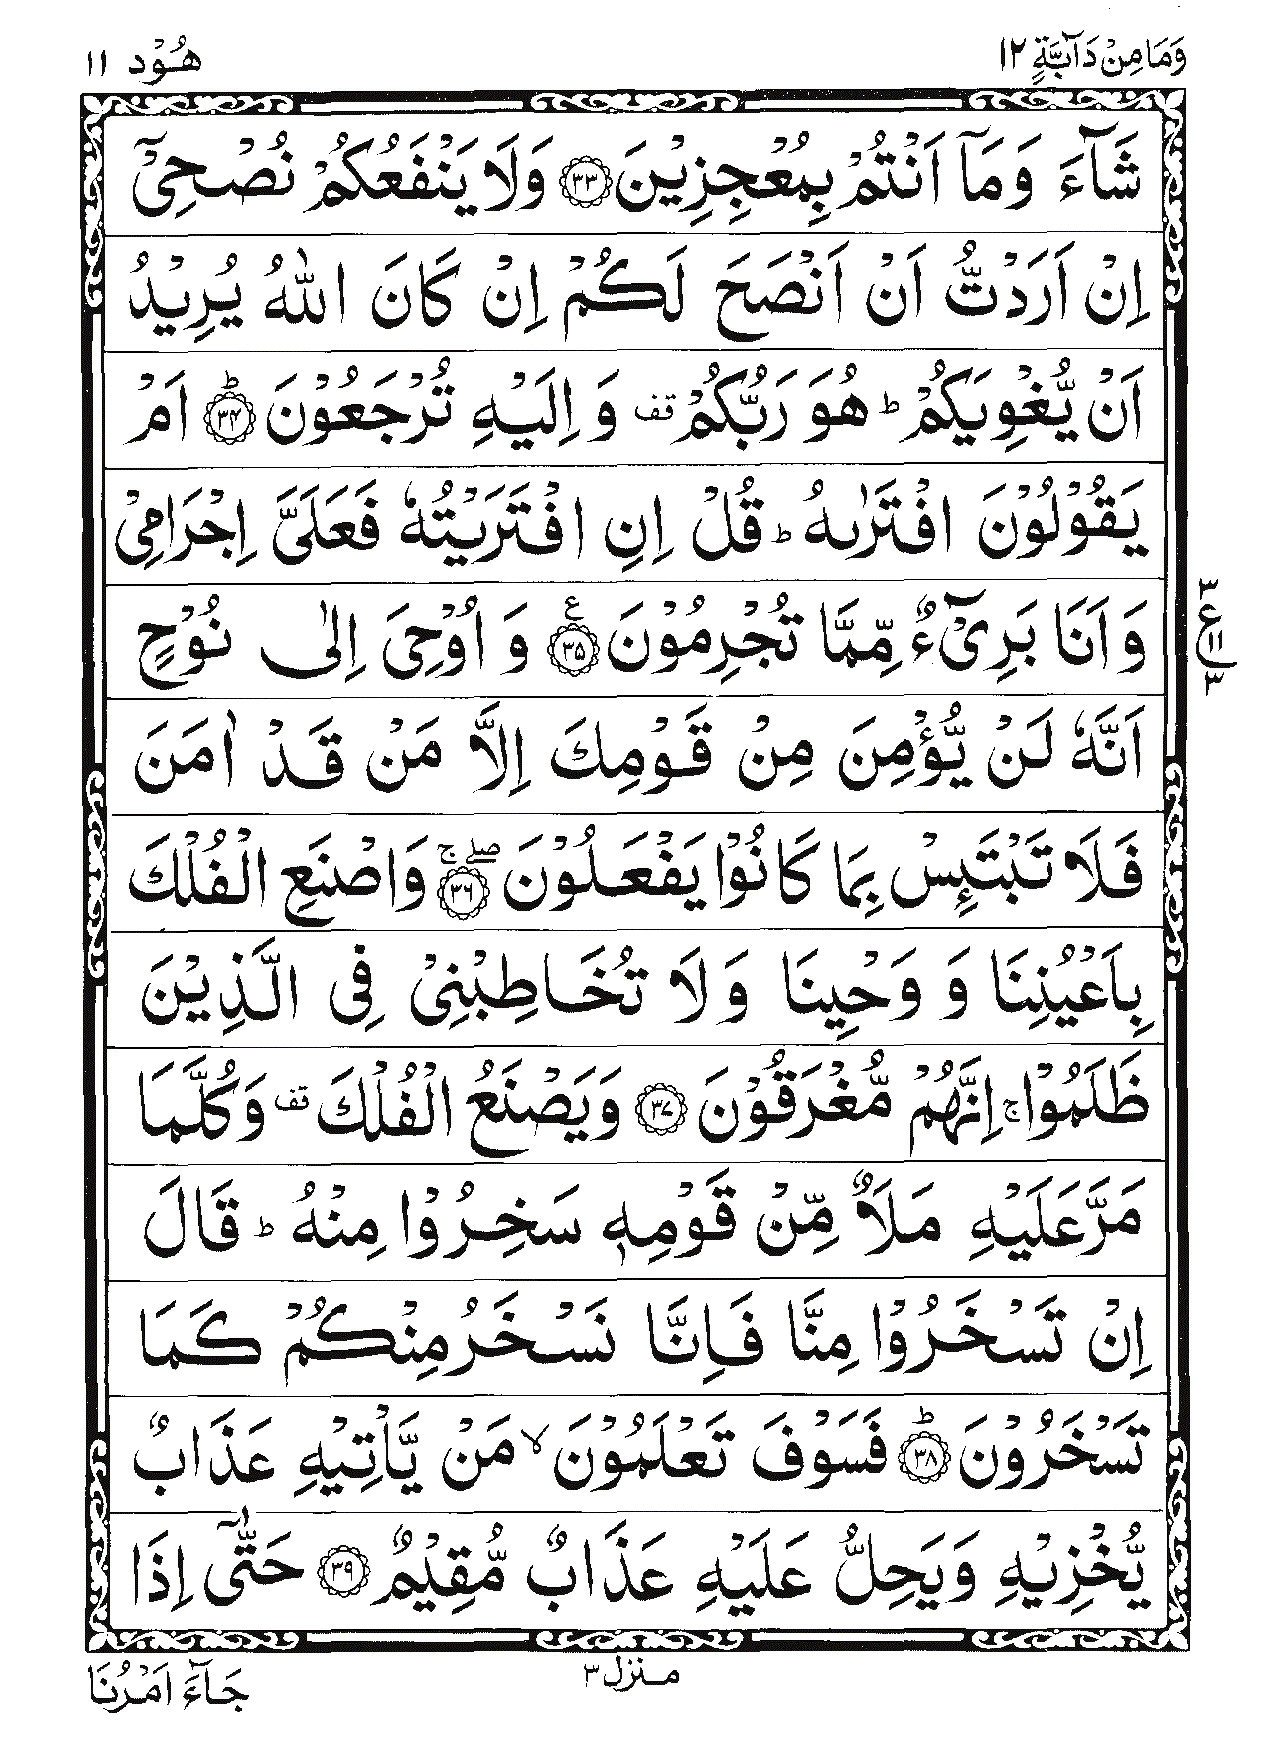 وَمَا مِنْ دَآبَّةٍ ١٢
هُوْد ١١
شَآءَ وَمَآ اَنْتُمْ بِمُعْجِزِيْنَ ﴿٣٣﴾ وَلَا يَنْفَعُكُمْ نُصْحِيْٓ
اِنْ اَرَدْتُّ اَنْ اَنْصَحَ لَكُمْ اِنْ كَانَ اللّٰهُ يُرِيْدُ
اَنْ يُّغْوِيَكُمْ ؕ هُوَ رَبُّكُمْ قف وَ اِلَيْهِ تُرْجَعُوْنَ ؕ﴿٣٤﴾ اَمْ
يَقُوْلُوْنَ افْتَرٰىهُ ؕ قُلْ اِنِ افْتَرَيْتُهٗ فَعَلَيَّ اِجْرَامِيْ
وَ اَنَا بَرِيْٓءٌ مِّمَّا تُجْرِمُوْنَ ﴿٣٥﴾ع وَ اُوْحِيَ اِلٰى نُوْحٍ
٣ ع ١١ ٣
اَنَّهٗ لَنْ يُّؤْمِنَ مِنْ قَوْمِكَ اِلَّا مَنْ قَدْ اٰمَنَ
فَلَا تَبْتَىِٕسْ بِمَا كَانُوْا يَفْعَلُوْنَ صلے ج ﴿٣٦﴾ وَاصْنَعِ الْفُلْكَ
بِاَعْيُنِنَا وَ وَحْيِنَا وَ لَا تُخَاطِبْنِيْ فِي الَّذِيْنَ
ظَلَمُوْا ج اِنَّهُمْ مُّغْرَقُوْنَ ﴿٣٧﴾ وَيَصْنَعُ الْفُلْكَ قف وَكُلَّمَا
مَرَّ عَلَيْهِ مَلَاٌ مِّنْ قَوْمِهٖ سَخِرُوْا مِنْهُ ؕ قَالَ
اِنْ تَسْخَرُوْا مِنَّا فَاِنَّا نَسْخَرُ مِنْكُمْ كَمَا
تَسْخَرُوْنَ ؕ﴿٣٨﴾ فَسَوْفَ تَعْلَمُوْنَ ۙ مَنْ يَّاْتِيْهِ عَذَابٌ
يُّخْزِيْهِ وَيَحِلُّ عَلَيْهِ عَذَابٌ مُّقِيْمٌ ﴿٣٩﴾ حَتّٰىٓ اِذَا
منزل ٣
جَآءَ اَمْرُنَا